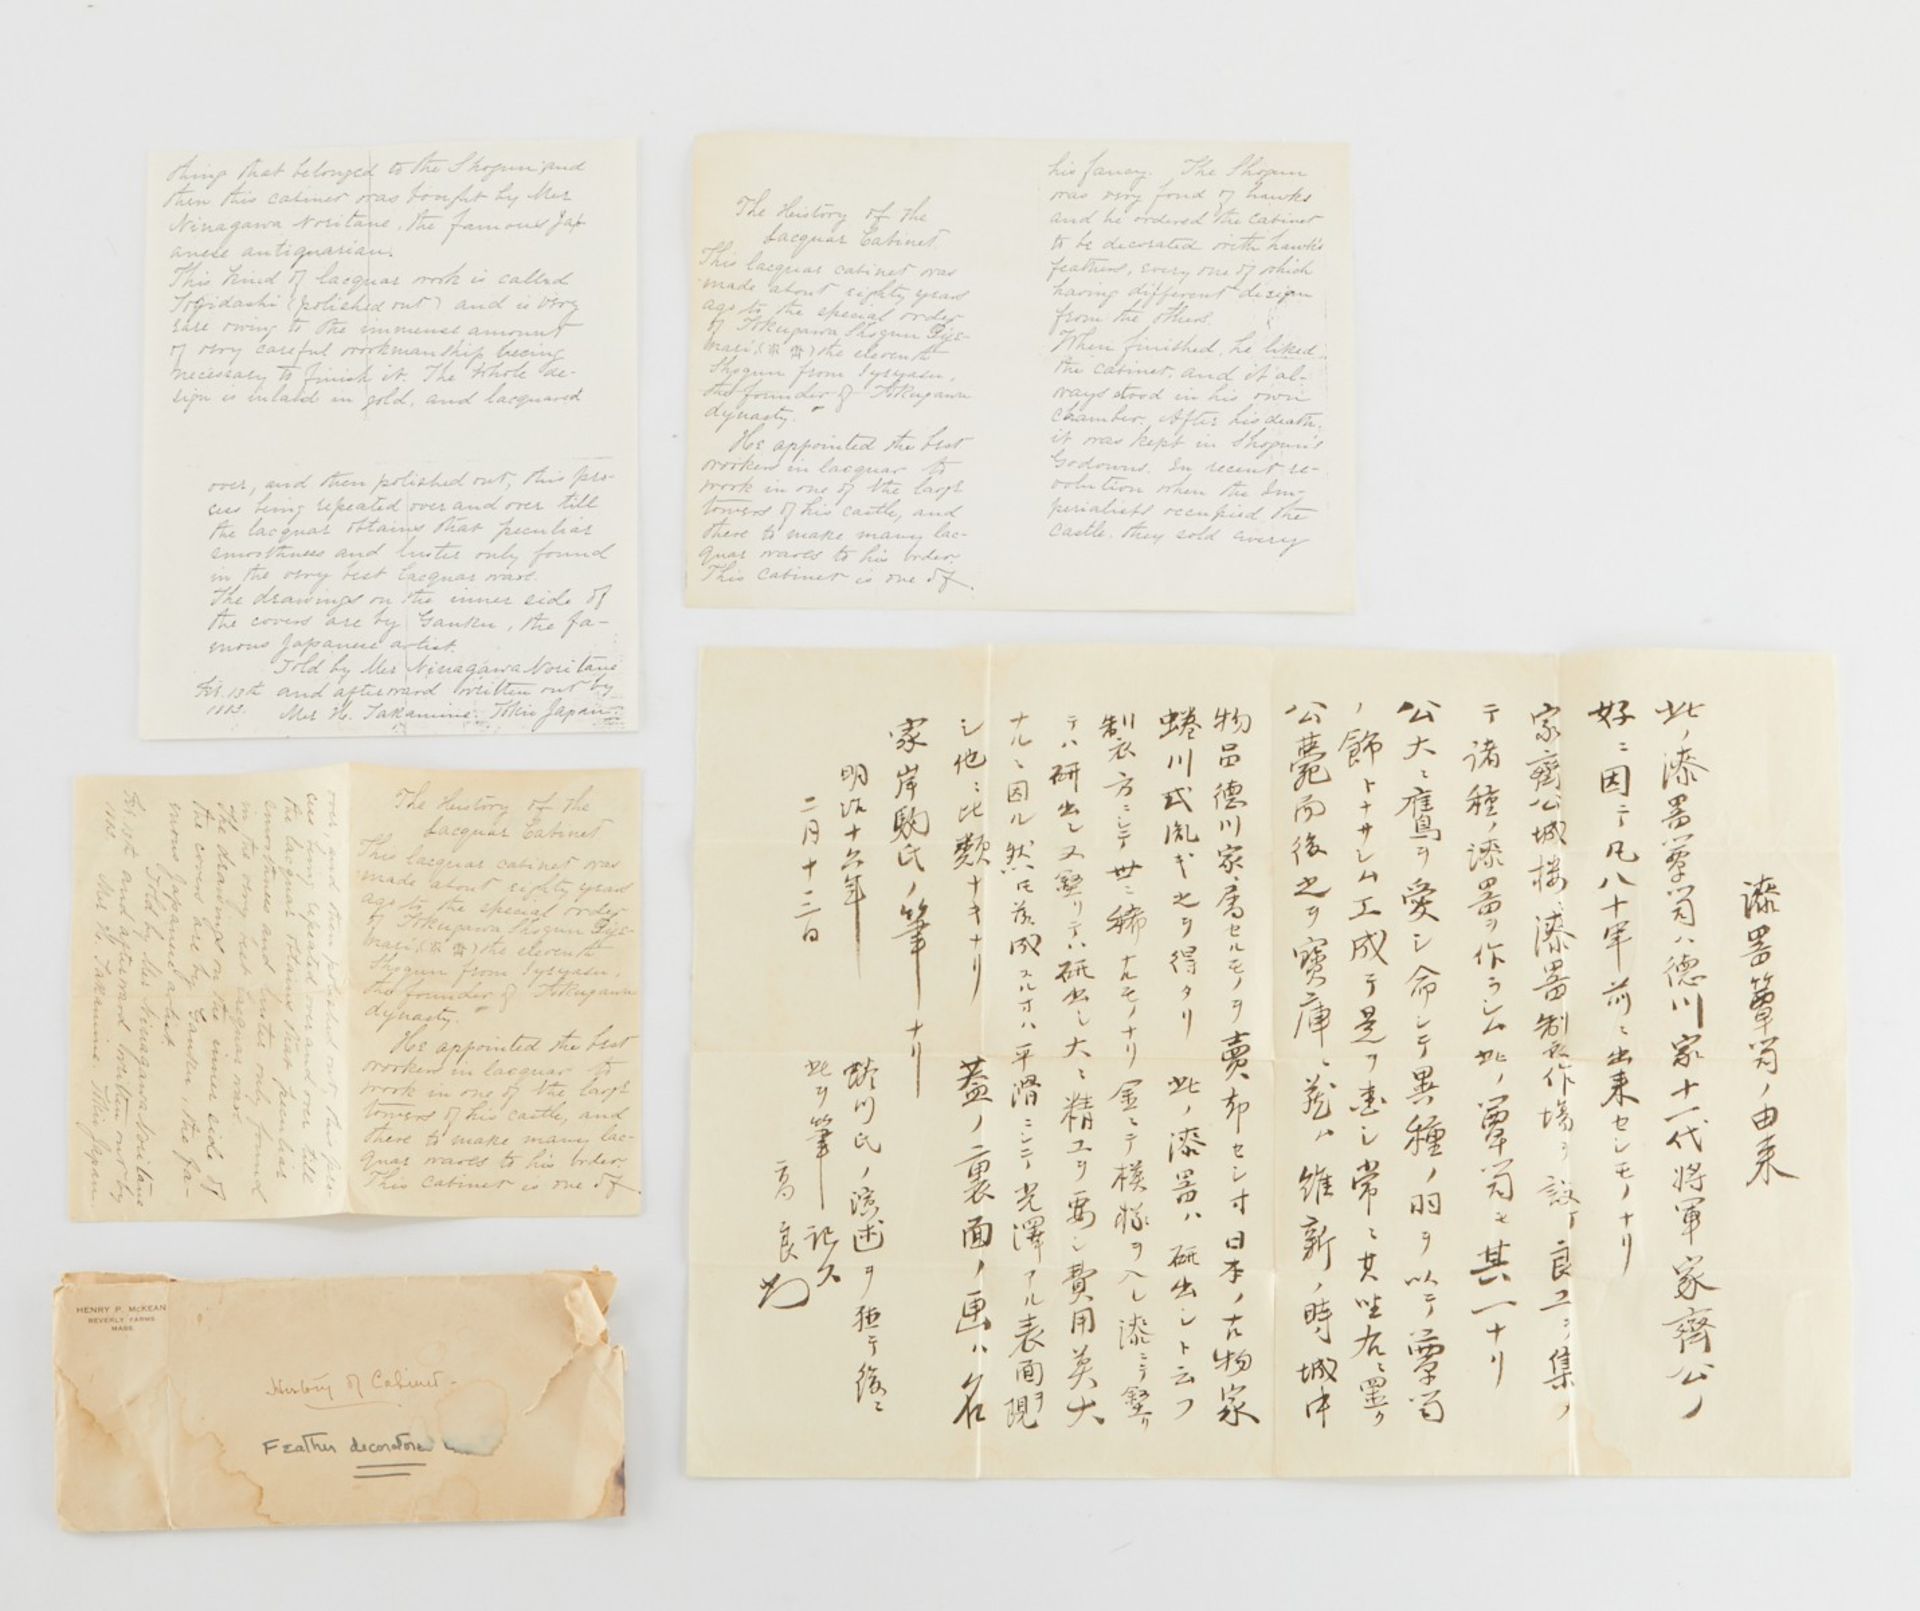 thing that belonged to the Shogun and
then this cabinet was bought by Mer
Ninagawa Noritane, the famous Jap-
anese antiquarian.
This kind of lacquar work is called
Togidashi (polished out) and is very
rare owing to the immense amount
of very careful workmanship beeing
necessary to finish it. The whole de-
sign is inlaid in gold, and lacquared
over, and then polished out, this pro-
cess being repeated over and over till
the lacquar obtains that peculiar
smoothness and luster only found
in the very best lacquar ware.
The drawings on the inner side of
the covers are by Ganku, the fa-
mous Japanese artist.
Told by Mer Ninagawa Noritane
Feb. 13th and afterward written out by
1883. Mer H. Takamine. Tokio Japan.
The History of the
Lacquar Cabinet
This lacquar cabinet was
made about eighty years
ago to the special order
of Tokugawa Shogun Iye-
nari (家齊) the eleventh
Shogun from Iyeyasu,
the founder of Tokugawa
dynasty.
He appointed the best
workers in lacquar to
work in one of the large
towers of his castle, and
there to make many lac-
quar wares to his order.
This cabinet is one of
his fancy. The Shogun
was very fond of hawks
and he ordered the cabinet
to be decorated with hawk's
feathers, every one of which
having different design
from the others.
When finished, he liked
the cabinet, and it al-
ways stood in his own
chamber. After his death,
it was kept in Shogun's
Godowns. In recent re-
volution when the Im-
perialists occupied the
castle, they sold every
漆器簞笥ノ由来
此ノ漆器簞笥ハ德川家十一代将軍家齊公ノ
好ニ因テ凡八十年前ニ出来セシモノナリ
家齊公城楼ニ漆器製作場ヲ設ケ良工ヲ集メ
テ諸種ノ漆器ヲ作ラシム此ノ簞笥モ其一ナリ
公大ニ鷹ヲ愛シ命シテ異種ノ羽ヲ以テ簞笥
ノ飾トナサシム工成テ是ヲ愛シ常ニ其坐右ニ置ク
公薨而後之ヲ寶庫ニ蔵ム維新ノ時城中
物品德川家ニ属セルモノヲ賣却セシ寸日本ノ古物家
蜷川式胤氏之ヲ得タリ 此ノ漆器ハ研出シト云フ
製衣方ニシテ世ニ稀ナルモノナリ金ニテ模様ヲ入レ漆ニテ塗リ
テハ研出シ又塗リテハ研出シ大ニ精工ヲ要シ費用莫大
ナルニ因ル然モ落成スル寸ハ平滑ニシテ光澤アル表面ヲ現
シ他ニ比類ナキナリ 蓋ノ裏面ノ画ハ名
家岸駒氏ノ筆ナリ
明治十六年 蜷川氏ノ演述ヲ 後ニ
二月十三日 此ヲ筆記ス
高良
The History of the
Lacquar Cabinet
This lacquar cabinet was
made about eighty years
ago to the special order
of Tokugawa Shogun Iye-
nari (家齊) the eleventh
Shogun from Iyeyasu,
the founder of Tokugawa
dynasty.
He appointed the best
workers in lacquar to
work in one of the large
towers of his castle, and
there to make many lac-
quar wares to his order.
This cabinet is one of
over, and then polished out, this pro-
cess being repeated over and over till
the lacquar obtains that peculiar
smoothness and luster only found
in the very best lacquar ware.
The drawings on the inner side of
the covers are by Ganku, the fa-
mous Japanese artist.
Told by Mer Ninagawa Noritane
Feb. 13th and afterward written out by
1883. Mer H. Takamine. Tokio Japan.
HENRY P. McKEAN
BEVERLY FARMS
MASS.
History of Cabinet -
Feather decorations